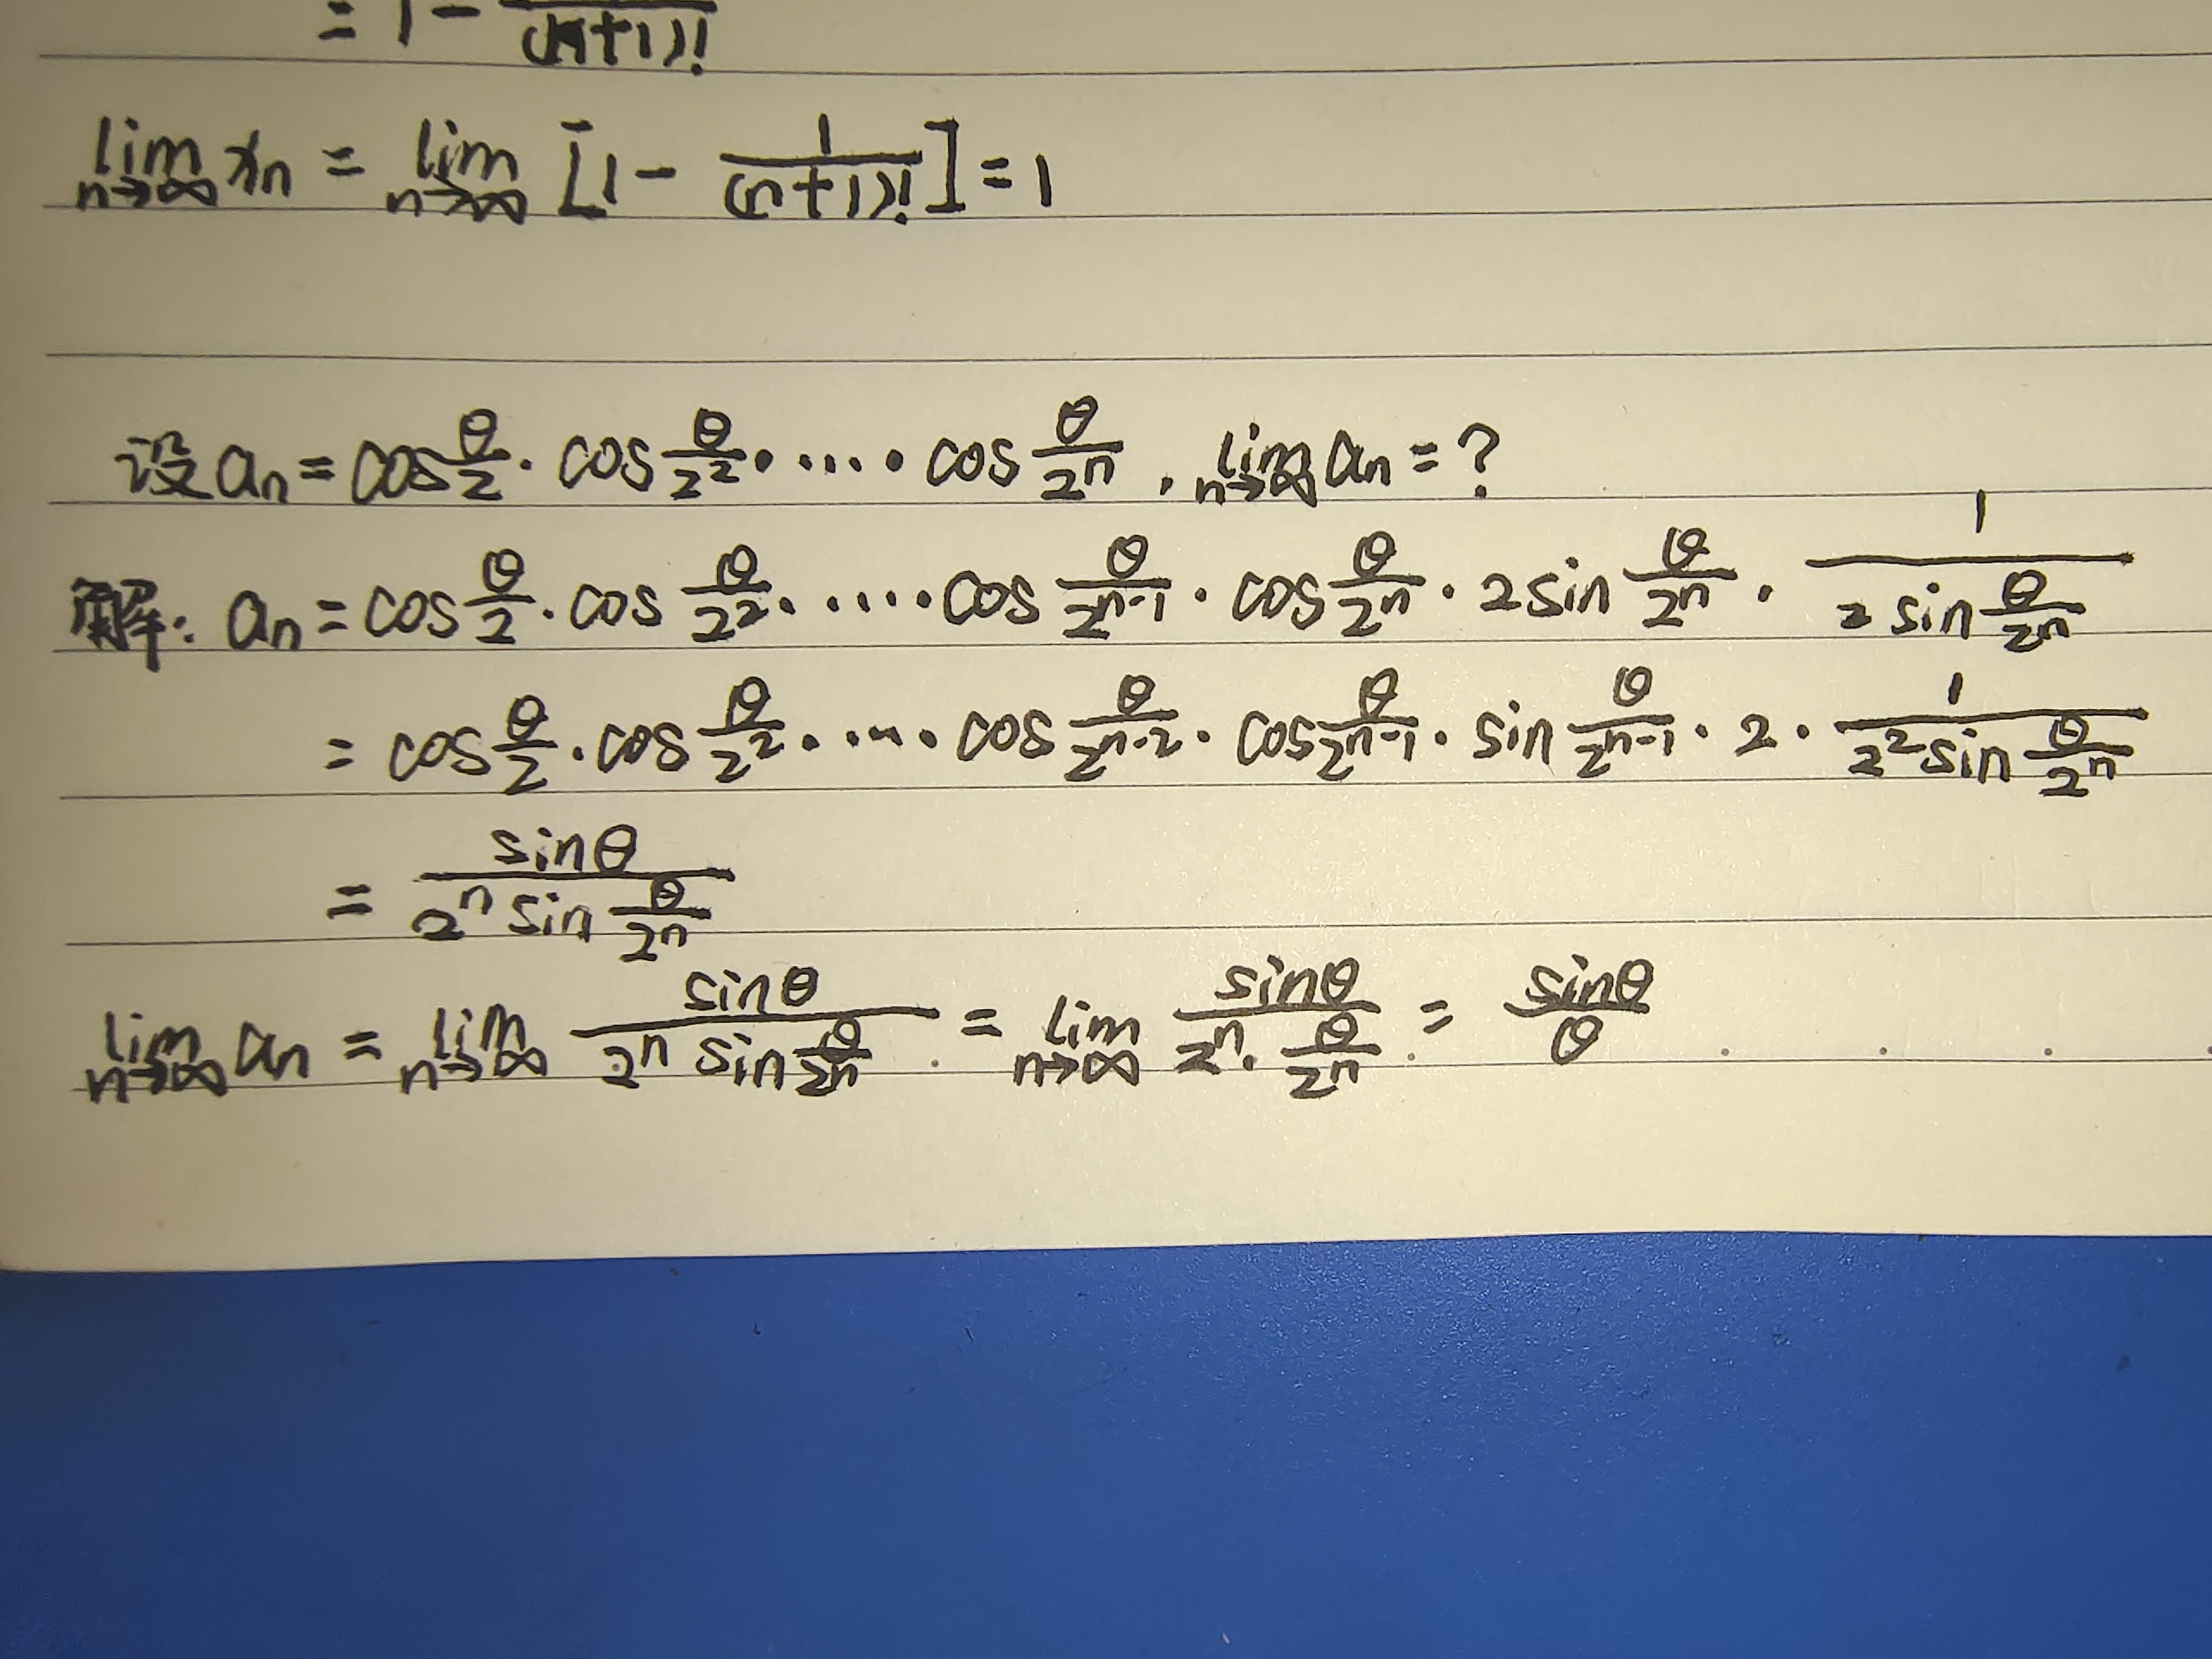 = 1 - 1/(n+1)!
lim_{n→∞} x_n = lim_{n→∞} [1 - 1/(n+1)!] = 1
设 a_n = cos θ/2 · cos θ/2² · ···· · cos θ/2ⁿ , lim_{n→∞} a_n = ?
解: a_n = cos θ/2 · cos θ/2² · ···· · cos θ/2ⁿ⁻¹ · cos θ/2ⁿ · 2 sin θ/2ⁿ · 1/(2 sin θ/2ⁿ)
= cos θ/2 · cos θ/2² · ···· · cos θ/2ⁿ⁻² · cos θ/2ⁿ⁻¹ · sin θ/2ⁿ⁻¹ · 2 · 1/(2² sin θ/2ⁿ)
= sinθ/(2ⁿ sin θ/2ⁿ)
lim_{n→∞} a_n = lim_{n→∞} sinθ/(2ⁿ sin θ/2ⁿ) = lim_{n→∞} sinθ/(2ⁿ · θ/2ⁿ) = sinθ/θ